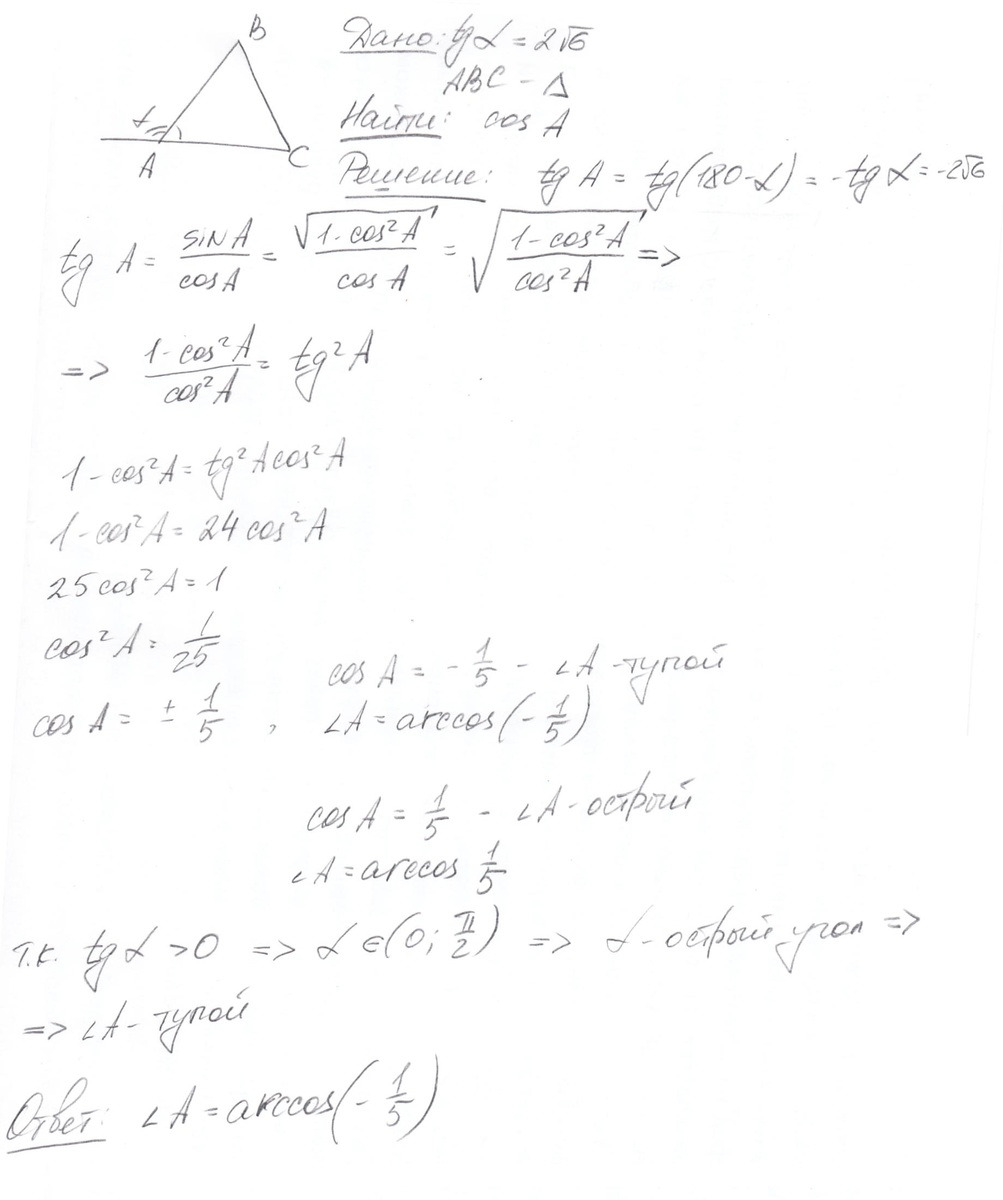 B
α
A
C
Дано: tg α = 2√6
ABC - Δ
Найти: cos A
Решение: tg A = tg(180-α) = -tg α = -2√6
tg A = sin A / cos A = √(1-cos²A) / cos A = √((1-cos²A) / cos²A) =>
=> (1-cos²A) / cos²A = tg²A
1-cos²A = tg²A cos²A
1-cos²A = 24 cos²A
25cos²A = 1
cos²A = 1/25
cos A = ± 1/5 ,
cos A = - 1/5 - ∠A - тупой
∠A = arccos(- 1/5)
cos A = 1/5 - ∠A - острый
∠A = arccos 1/5
т.к. tg α >0 => α ∈ (0; π/2) => α - острый угол =>
=> ∠A - тупой
Ответ: ∠A = arccos(- 1/5)